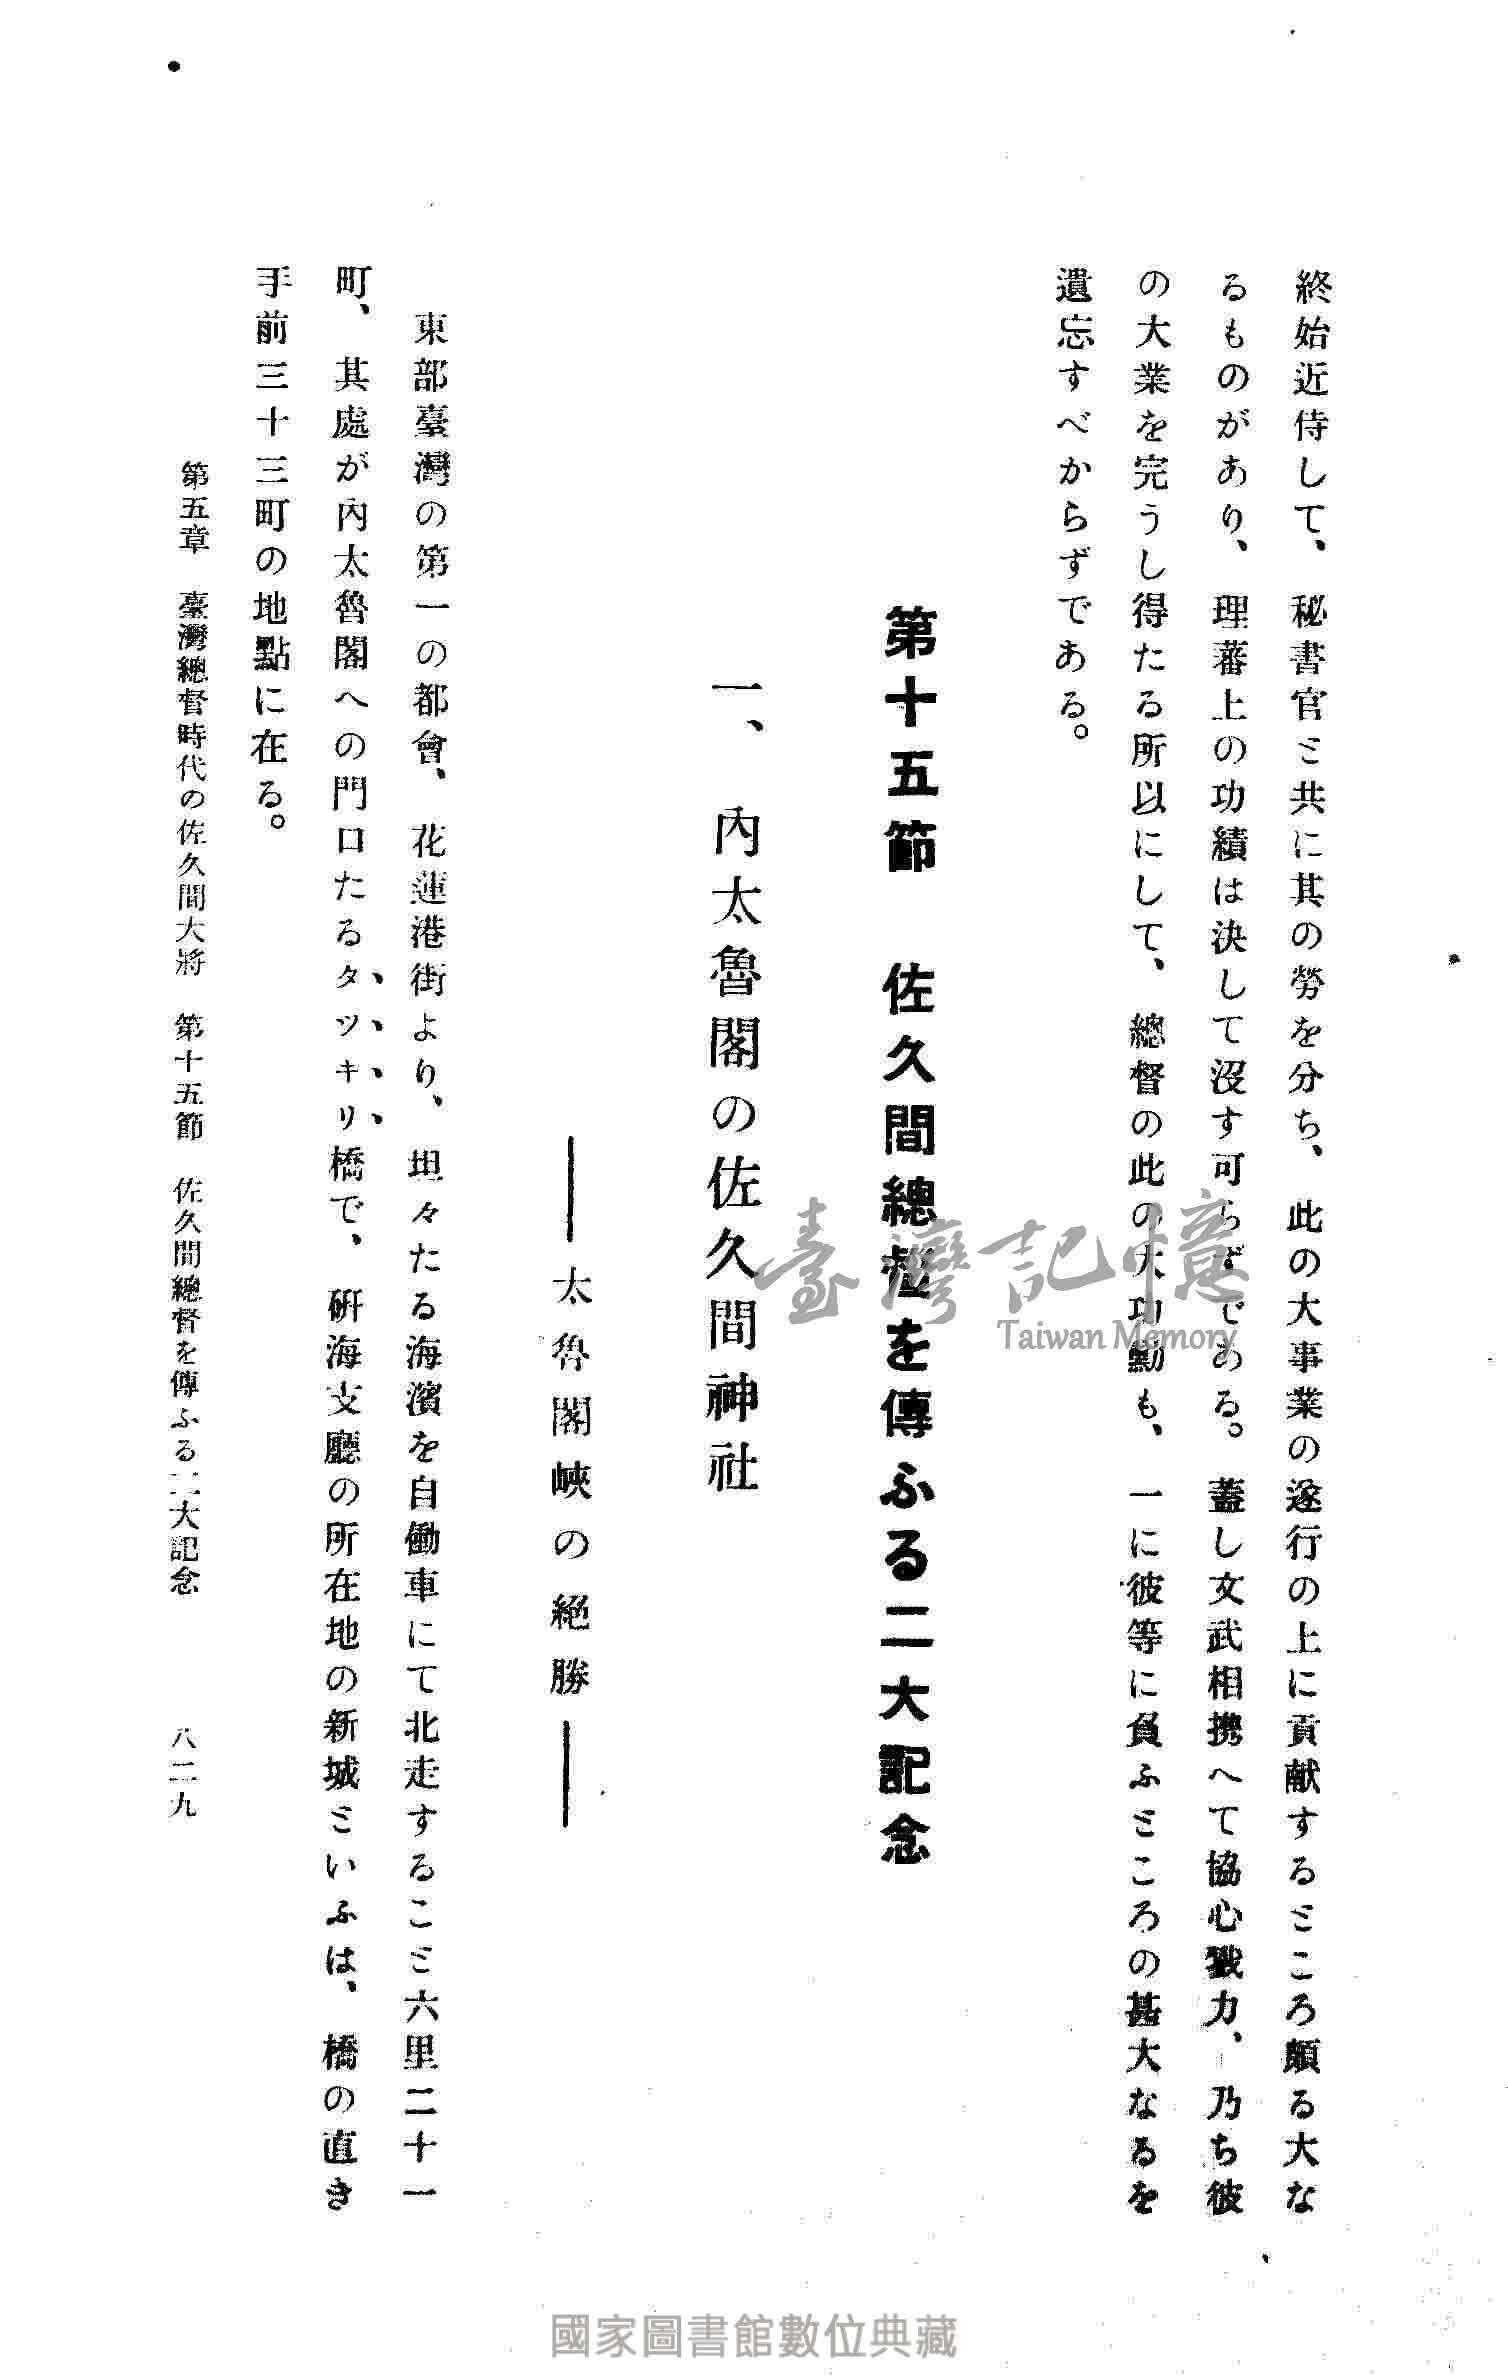 終始近侍して、秘書官ミ共に其の勞を分ち、此の大事業の遂行の上に貢献するミころ頗る大な
るものがあり、理蕃上の功績は決して沒す可らずである。蓋し文武相携へて協心戮力、乃ち彼
の大業を完うし得たる所以にして、總督の此の大功勳も、一に彼等に負ふミころの甚大なるを
遺忘すべからずである。
第十五節　佐久間總督を傳ふる二大記念
一、內太魯閣の佐久間神社
――太魯閣峽の絕勝――
東部臺灣の第一の都會、花蓮港街より、坦々たる海濱を自働車にて北走するこミ六里二十一
町、其處が內太魯閣への門口たるタツキリ橋で、硏海支廳の所在地の新城ミいふは、橋の直き
手前三十三町の地點に在る。
第五章　臺灣總督時代の佐久間大將　第十五節　佐久間總督を傳ふる二大記念
八二九
臺灣記憶
Taiwan Memory
國家圖書館數位典藏